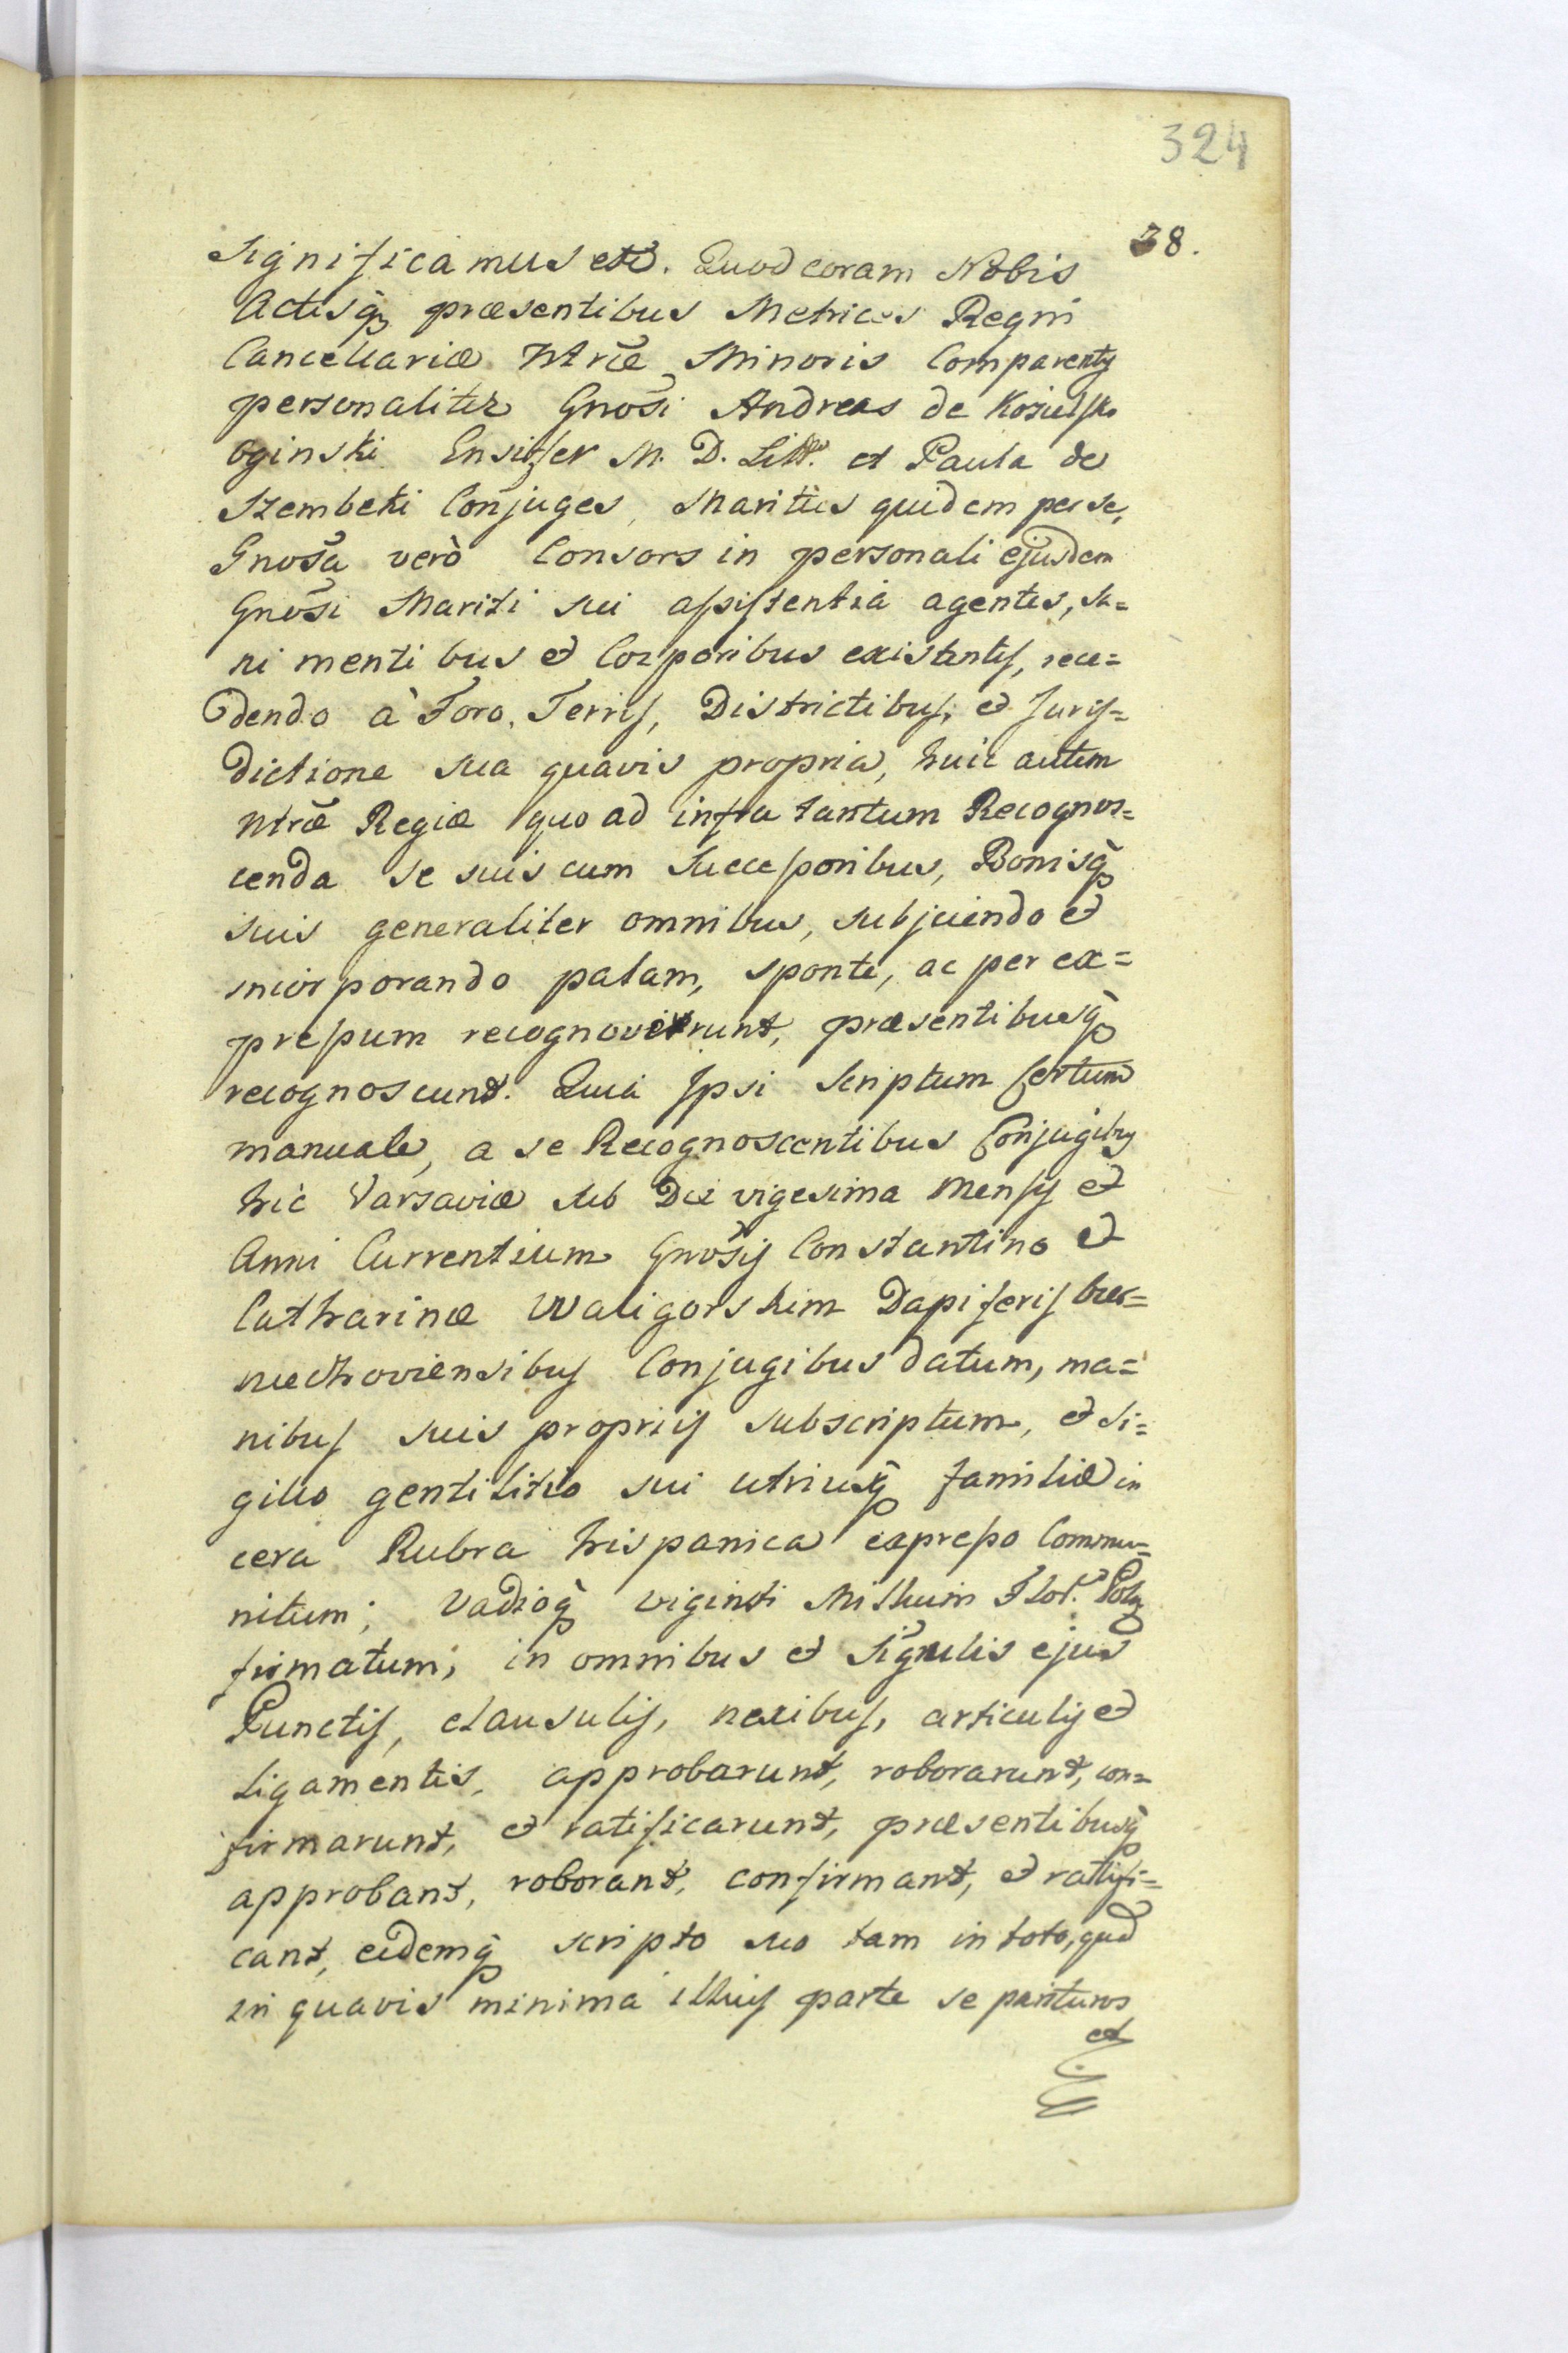 324
38.
Significamus etc. Quod coram Nobis
Actisq́ præsentibus Metrices Regni
Cancellariæ Ntræ Minoris Comparentes
personaliter Gnosi Andreas de Kozielsko
Oginski Ensifer M. D. Litt. et Paula de
Szembeki Conjuges, Maritus quidem per se,
Gnosa verò Consors in personali ejusdem
Gnosi Mariti sui assistentia agentes, sa=
ni mentibus et Corporibus existentes, rece=
dendo à Foro, Terris, Districtibus, et Juris=
dictione sua quavis propria, huic autem
Ntræ Regiæ quo ad infra tantum Recognos=
cenda se suis cum Successoribus, Bonisq́
suis generaliter omnibus, subjiciendo et
incorporando palam, sponte, ac per ex=
pressum recognoverunt, præsentibusq́
recognoscunt. Quia Ipsi Scriptum certum
manuale, a se Recognoscentibus Conjugibus
hic Varsaviæ sub Die vigesima Mensis et
Anni Currentium Gnosis Constantino et
Catharinæ Waligorskim Dapiferis
Conjugibus datum, ma=
nibus suis propriis subscriptum, et si=
gillo gentilitio sui utriusq́ familiæ in
cera Rubra hispanica expresso Commu=
nitum; Vadioq́ viginti Millium Flor. Polz
firmatum; in omnibus et Signulis ejus
Punctis, clausulis, nexibus, articulis et
Ligamentis, approbarunt, roborarunt, con=
firmarunt, et ratificarunt, præsentibusq́
approbant, roborant, confirmant, et ratifi=
cant, eidemq́ scripto suo tam in toto, qud
in quavis minima illius parte se parituros
et